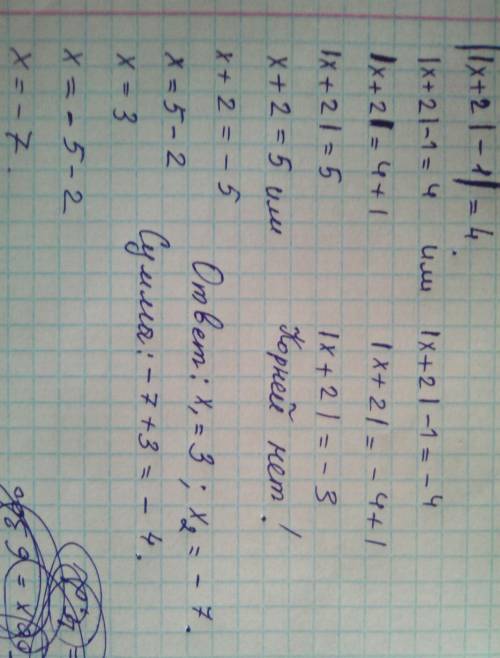 ||x+2|-1|=4.
|x+2|-1=4 или |x+2|-1=-4
|x+2|=4+1 |x+2|=-4+1
|x+2|=5 |x+2|=-3
x+2=5 или Корней нет!
x+2=-5
x=5-2 Ответ: x₁=3; x₂=-7.
x=3 Сумма: -7+3=-4.
x=-5-2
x=-7.